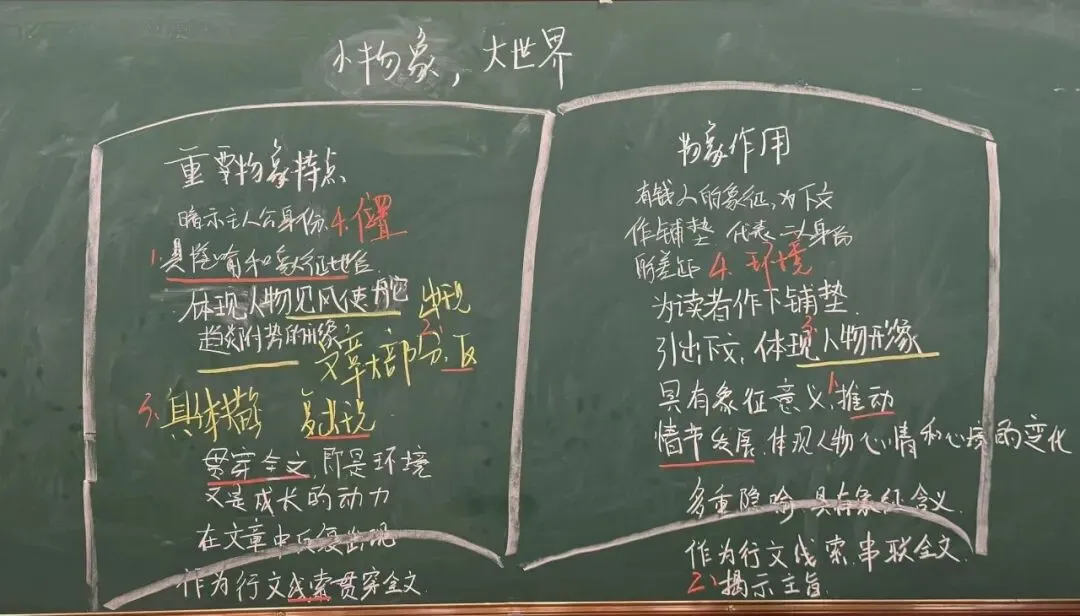 小物象，大世界
重要物象特点
暗示主人公身份 4.位置
1.具隐喻和象征地位
体现人物见风使舵 出现
趋炎附势的形象
2.文章大部分，反
3.具体描 复出现
贯穿全文，即是环境
又是成长的动力
在文章中反复出现
作为行文线索贯穿全文
物象作用
有钱人的象征，为下文
作铺垫 代表二人身份
4.环境
为读者作下铺垫
引出下文，体现人物形象
3.
具有象征意义，1.推动
情节发展，体现人物心情和心境的变化
多重隐喻 具有象征含义
作为行文线索，串联全文
2、揭示主旨